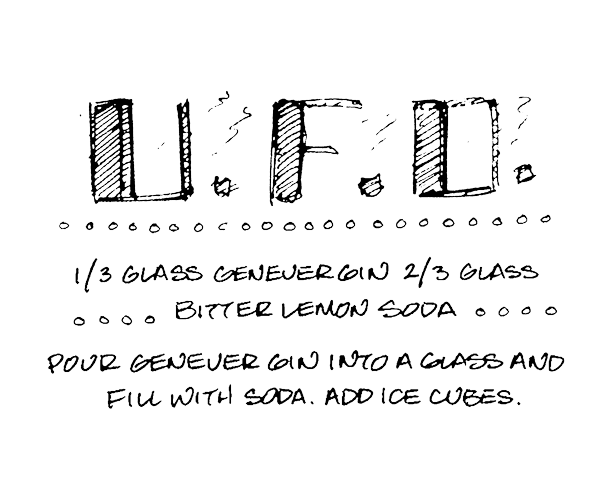 U.F.O.
1/3 GLASS GENEVER GIN 2/3 GLASS
BITTER LEMON SODA
POUR GENEVER GIN INTO A GLASS AND
FILL WITH SODA. ADD ICE CUBES.